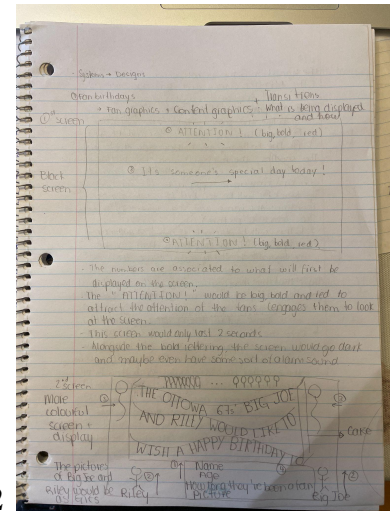 - Systems + Designs
① Fan birthdays
+ Fan graphics + Content graphics + Transitions
What is being displayed and how!
① screen
① ATTENTION! (big, bold, red)
Black screen
② It's someone's special day today!
① ATTENTION! (big, bold, red)
- The numbers are associated to what will first be
displayed on the screen.
The "ATTENTION!" would be big, bold and red to
attract the attention of the fans (engages them to look
at the screen.
- This screen would only last 2 seconds
- Alongside the bold lettering, the screen would go dark
and maybe even have some sort of alarm sound
2nd screen
More colourful screen + display
THE OTTOWA 67s' BIG JOE
AND RILLY WOULD LIKE TO
WISH A HAPPY BIRTHDAY TO
Cake
The pictures of Big Joe and Riley would be
Riley
Name
Age
How long they've been a fan
Picture
Big Joe
2